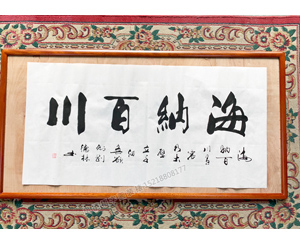 海納百川
海納百川有容乃大壁立千仞無欲則剛
15218808177